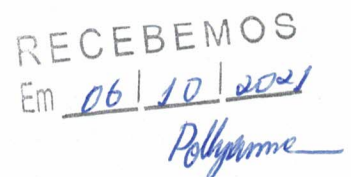 RECEBEMOS
Em 06 | 10 | 2021
Pollyanna